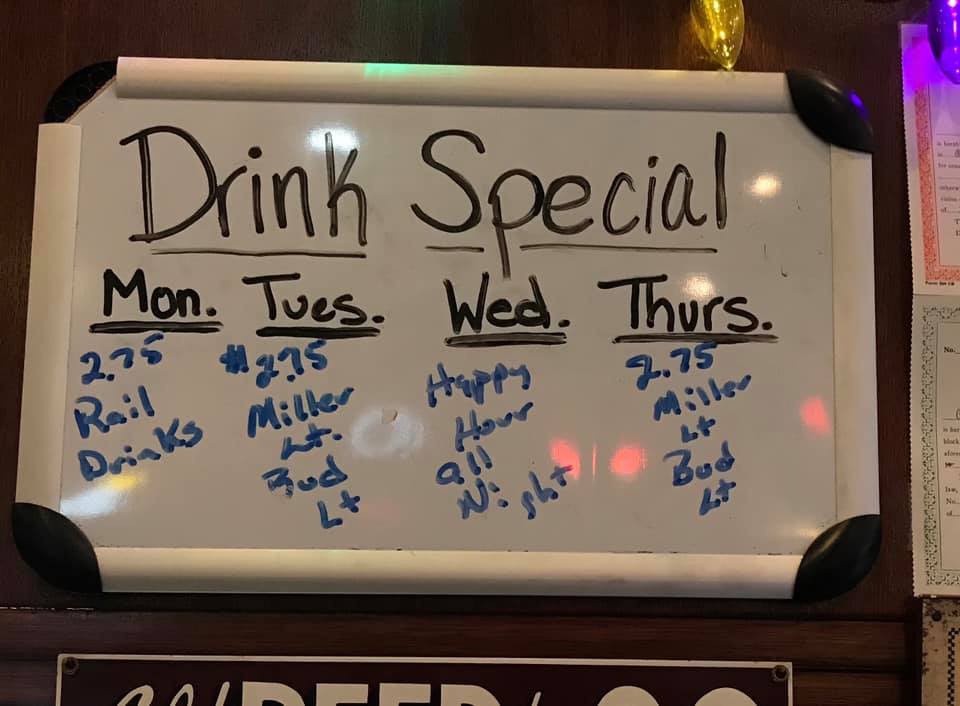 Drink Special
Mon. Tues. Wed. Thurs.
2.75
Rail
Drinks
$2.75
Miller
Lt.
Bud
Lt
Happy
Hour
all
Night
2.75
Miller
Lt
Bud
Lt
No.